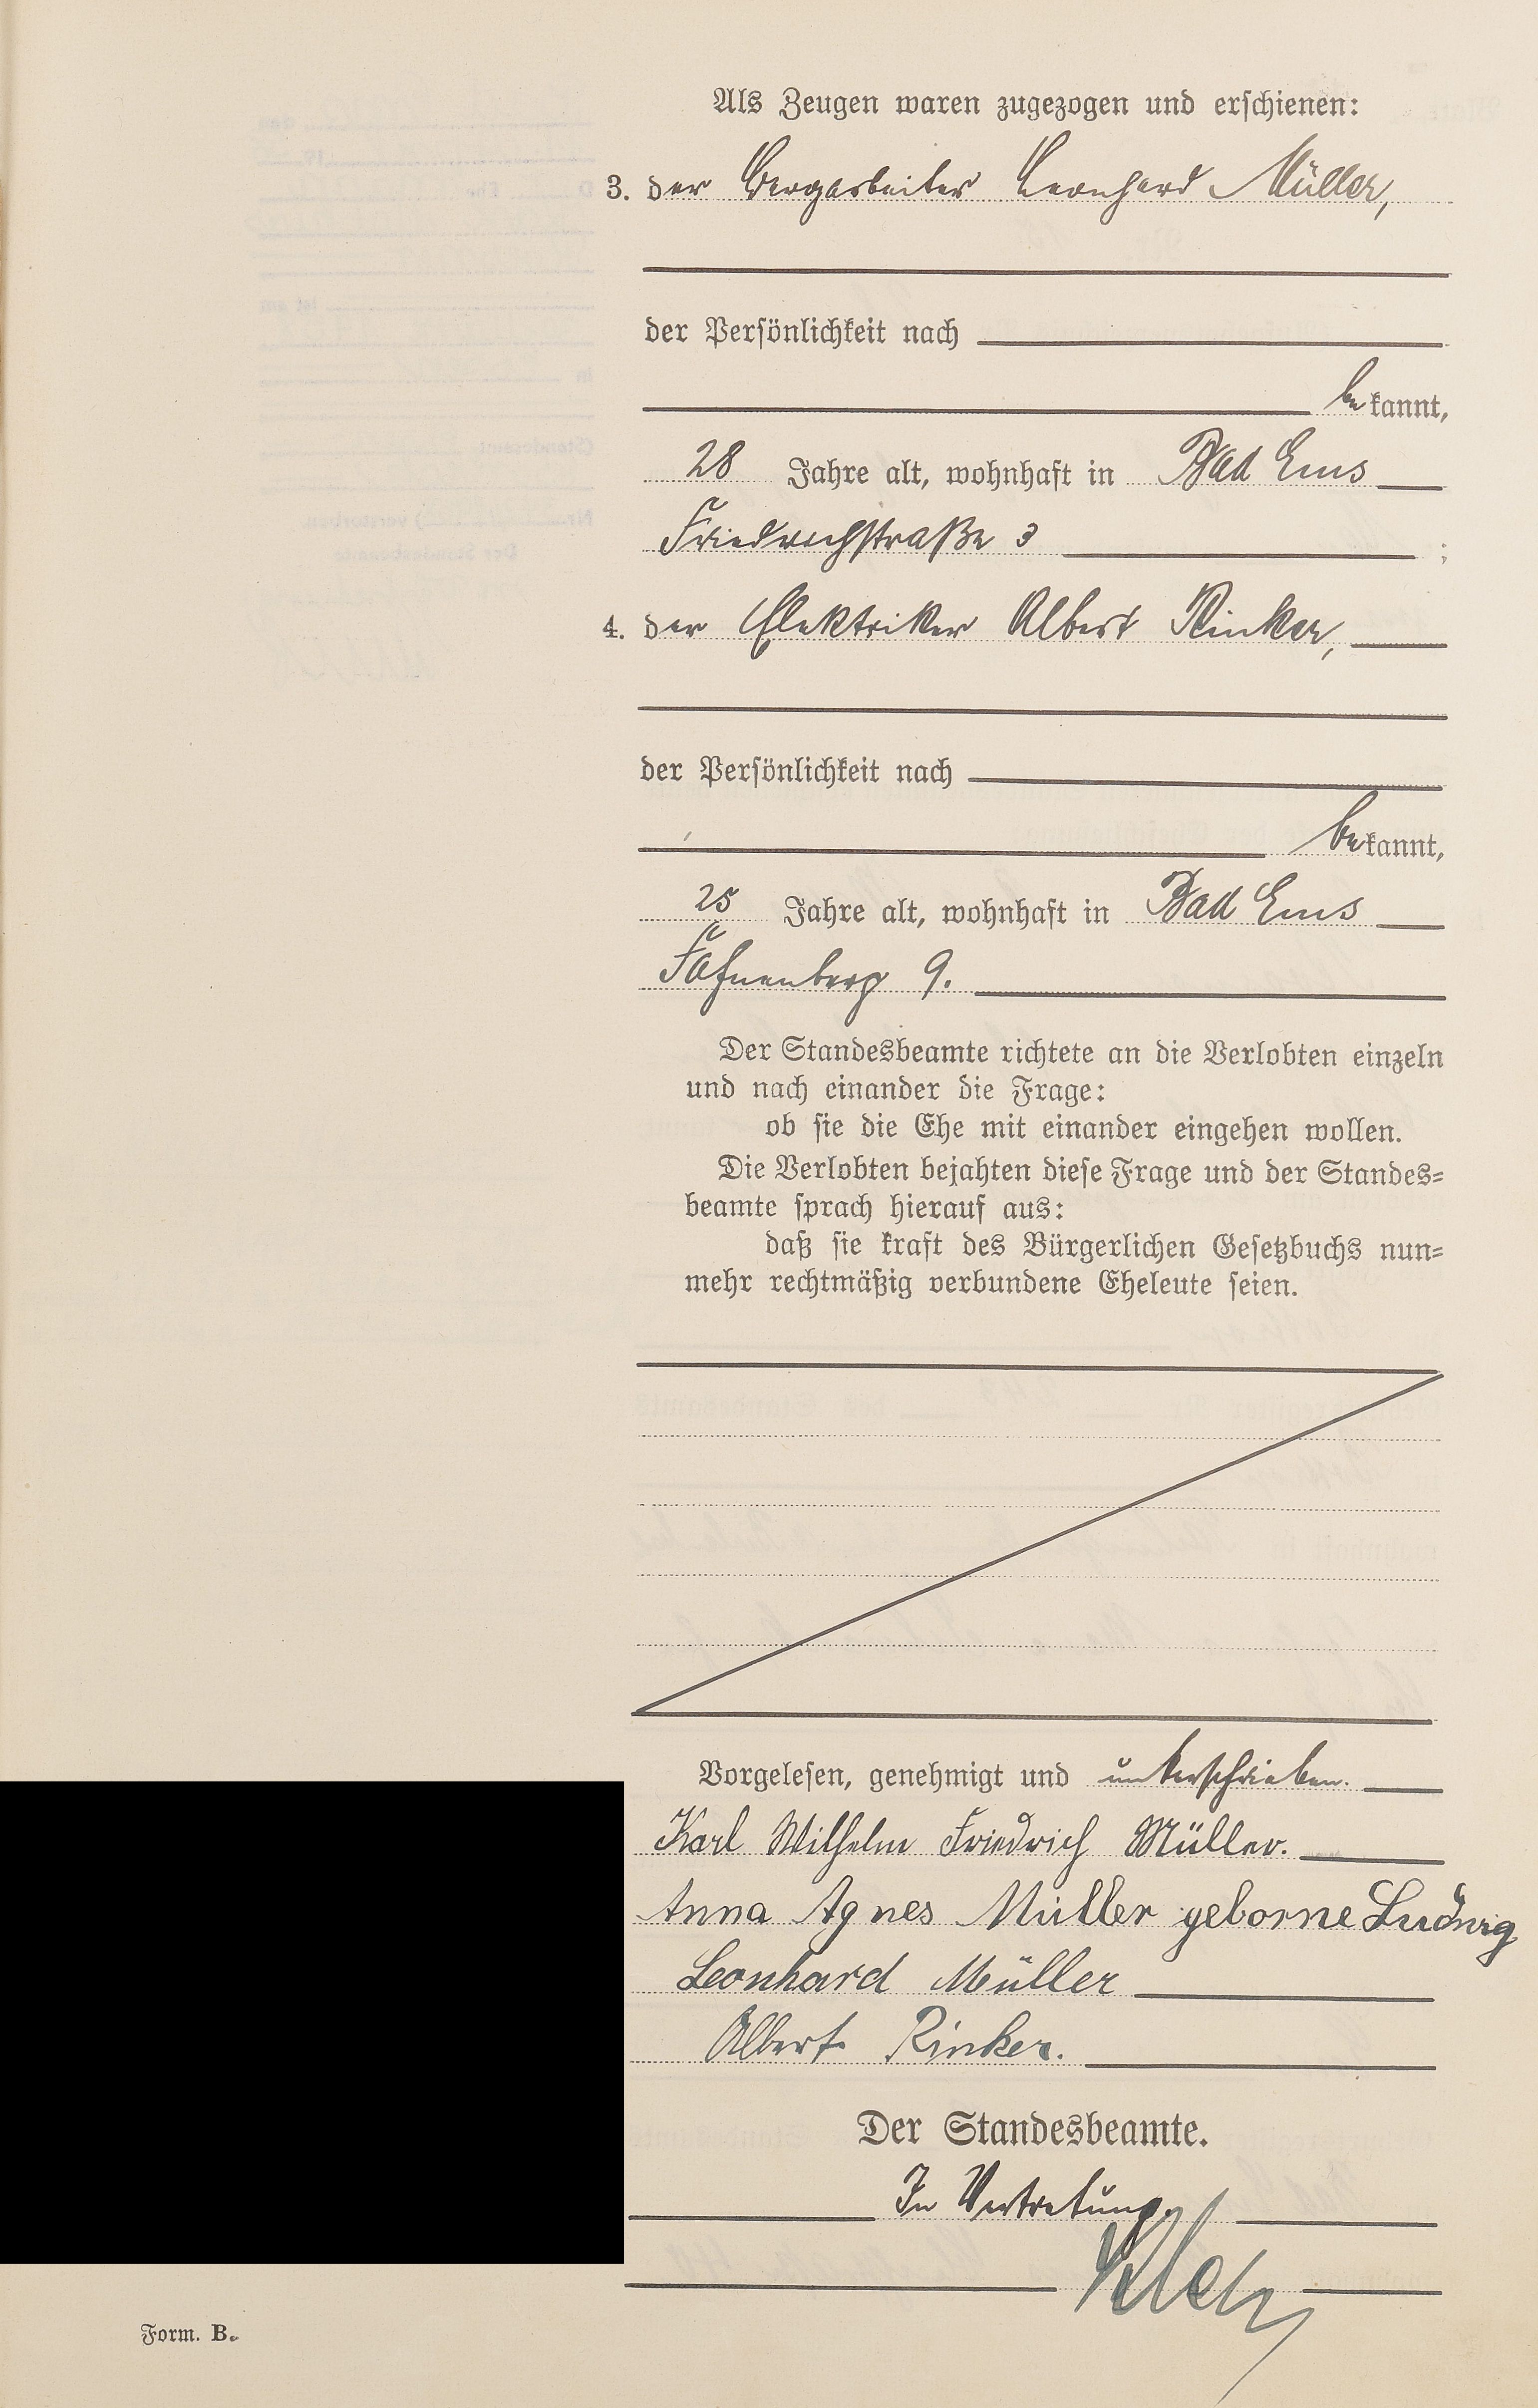 Als Zeugen waren zugezogen und erschienen:
3. der Bergarbeiter Leonhard Müller,
der Persönlichkeit nach
bekannt,
28 Jahre alt, wohnhaft in Bad Ems
Friedrichstraße 3 ;
4. der Elektriker Albert Rinker,
der Persönlichkeit nach
bekannt,
25 Jahre alt, wohnhaft in Bad Ems
Fahnenberg 9.
Der Standesbeamte richtete an die Verlobten einzeln
und nach einander die Frage:
ob sie die Ehe mit einander eingehen wollen.
Die Verlobten bejahten diese Frage und der Standes=
beamte sprach hierauf aus:
daß sie kraft des Bürgerlichen Gesetzbuchs nun=
mehr rechtmäßig verbundene Eheleute seien.
Vorgelesen, genehmigt und unterschrieben.
Karl Wilhelm Friedrich Müller.
Anna Agnes Müller geborne Ludwig
Leonhard Müller
Albert Rinker.
Der Standesbeamte.
In Vertretung.
Form. B.